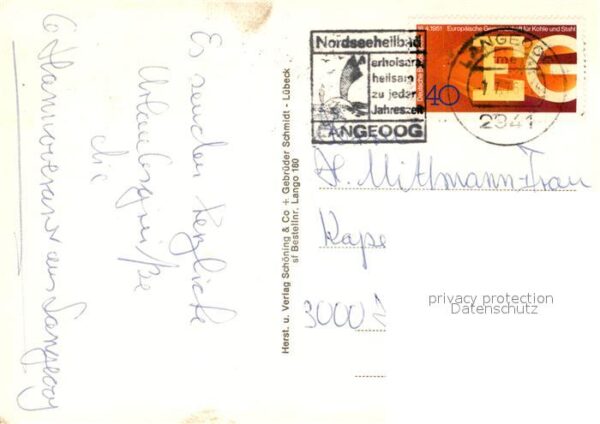 Es senden herzliche
Urlaubsgrüße
die
6 Hannoveraner aus Langeoog
Herst. u. Verlag Schöning & Co + Gebrüder Schmidt - Lübeck
sf Bestellnr. Lango 160
Nordseeheilbad
erholsam
heilsam
zu jeder
Jahreszeit
LANGEOOG
18.4.1951 Europäische Gemeinschaft für Kohle und Stahl
EG
40
LANGEOOG
2941
Mittmann-Frau
Kape
3000
privacy protection
Datenschutz